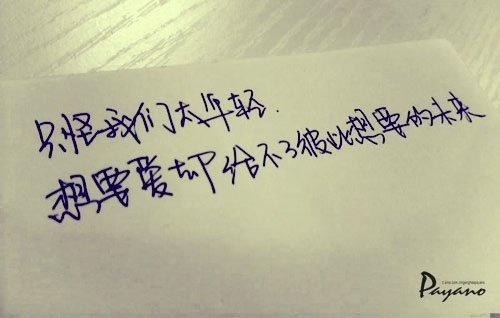 只怪我们太年轻.
想要爱却给不了彼此想要的未来
Payano